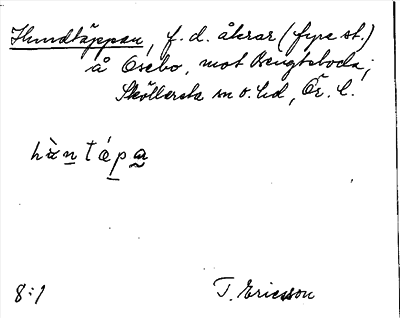 Hundtäppan, f. d. åkrar (fyra st.)
å Åsebo, mot Bengtsboda;
Sköllersta sn o. hd, Ör. l.
hàntápa
8:1 T. Ericsson